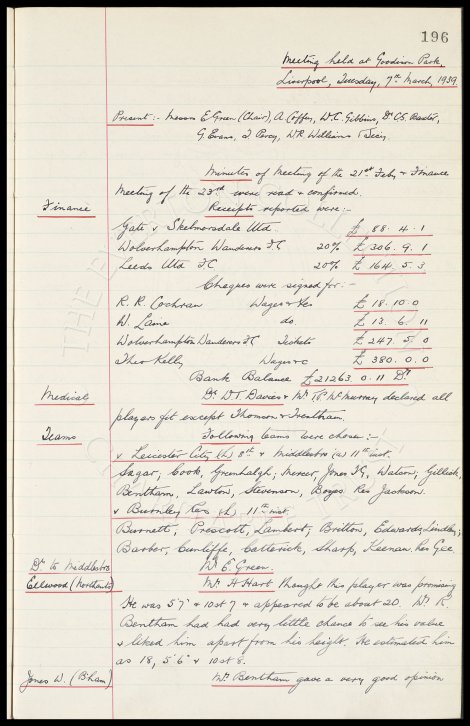 196
Meeting held at Goodison Park,
Liverpool, Tuesday, 7th March, 1939.
Present:- Messrs E. Green (Chair), A. Coffey, W.C. Gibbins, Dr C.S. Baxter,
G. Evans, J. Percy, W.R. Williams & Secy.
Minutes of Meeting of the 21st Feby & Finance
Meeting of the 23rd were read & confirmed.
Finance
Receipts reported were:-
Gate v Skelmersdale Utd. £ 88. 4. 1
Wolverhampton Wanderers F.C. 20% £ 306. 9. 1
Leeds Utd F.C. 20% £ 164. 5. 3
Cheques were signed for:-
R. R. Cochran Wages & Xes £ 18. 10. 0
W. Laine do. £ 13. 6. 11
Wolverhampton Wanderers F.C. Tickets £ 247. 5. 0
Theo Kelly Wages &c £ 380. 0. 0
Bank Balance £21263. 0. 11 Dr
Medical
Dr. W.T. Davies & Mr. McMurray declared all
players fit except Thomson & Trentham.
Teams
Following teams were chosen:-
v Leicester City (h) 8th & Middlesbro (a) 11th inst.
Sagar; Cook, Greenhalgh; Mercer, Jones T.G., Watson; Gillick,
Bentham, Lawton, Stevenson, Boyes. Res Jackson.
v Burnley Res (h) 11th inst.
Burnett; Prescott, Lambert; Britton, Edwards, Lindley;
Barber, Cunliffe, Catterick, Sharp, Keenan. Res Gee
Dr to Middlesbro
Mr. E. Green.
Ellwood (Northants)
Mr. H. Hart thought this player was promising
He was 5'7" & 10st 7 & appeared to be about 20. Mr. R.
Bentham had had very little chance to see his value
& liked him apart from his height. He estimated him
as 18, 5'6" & 10st 8.
Jones W. (B'ham)
Mr. Bentham gave a very good opinion